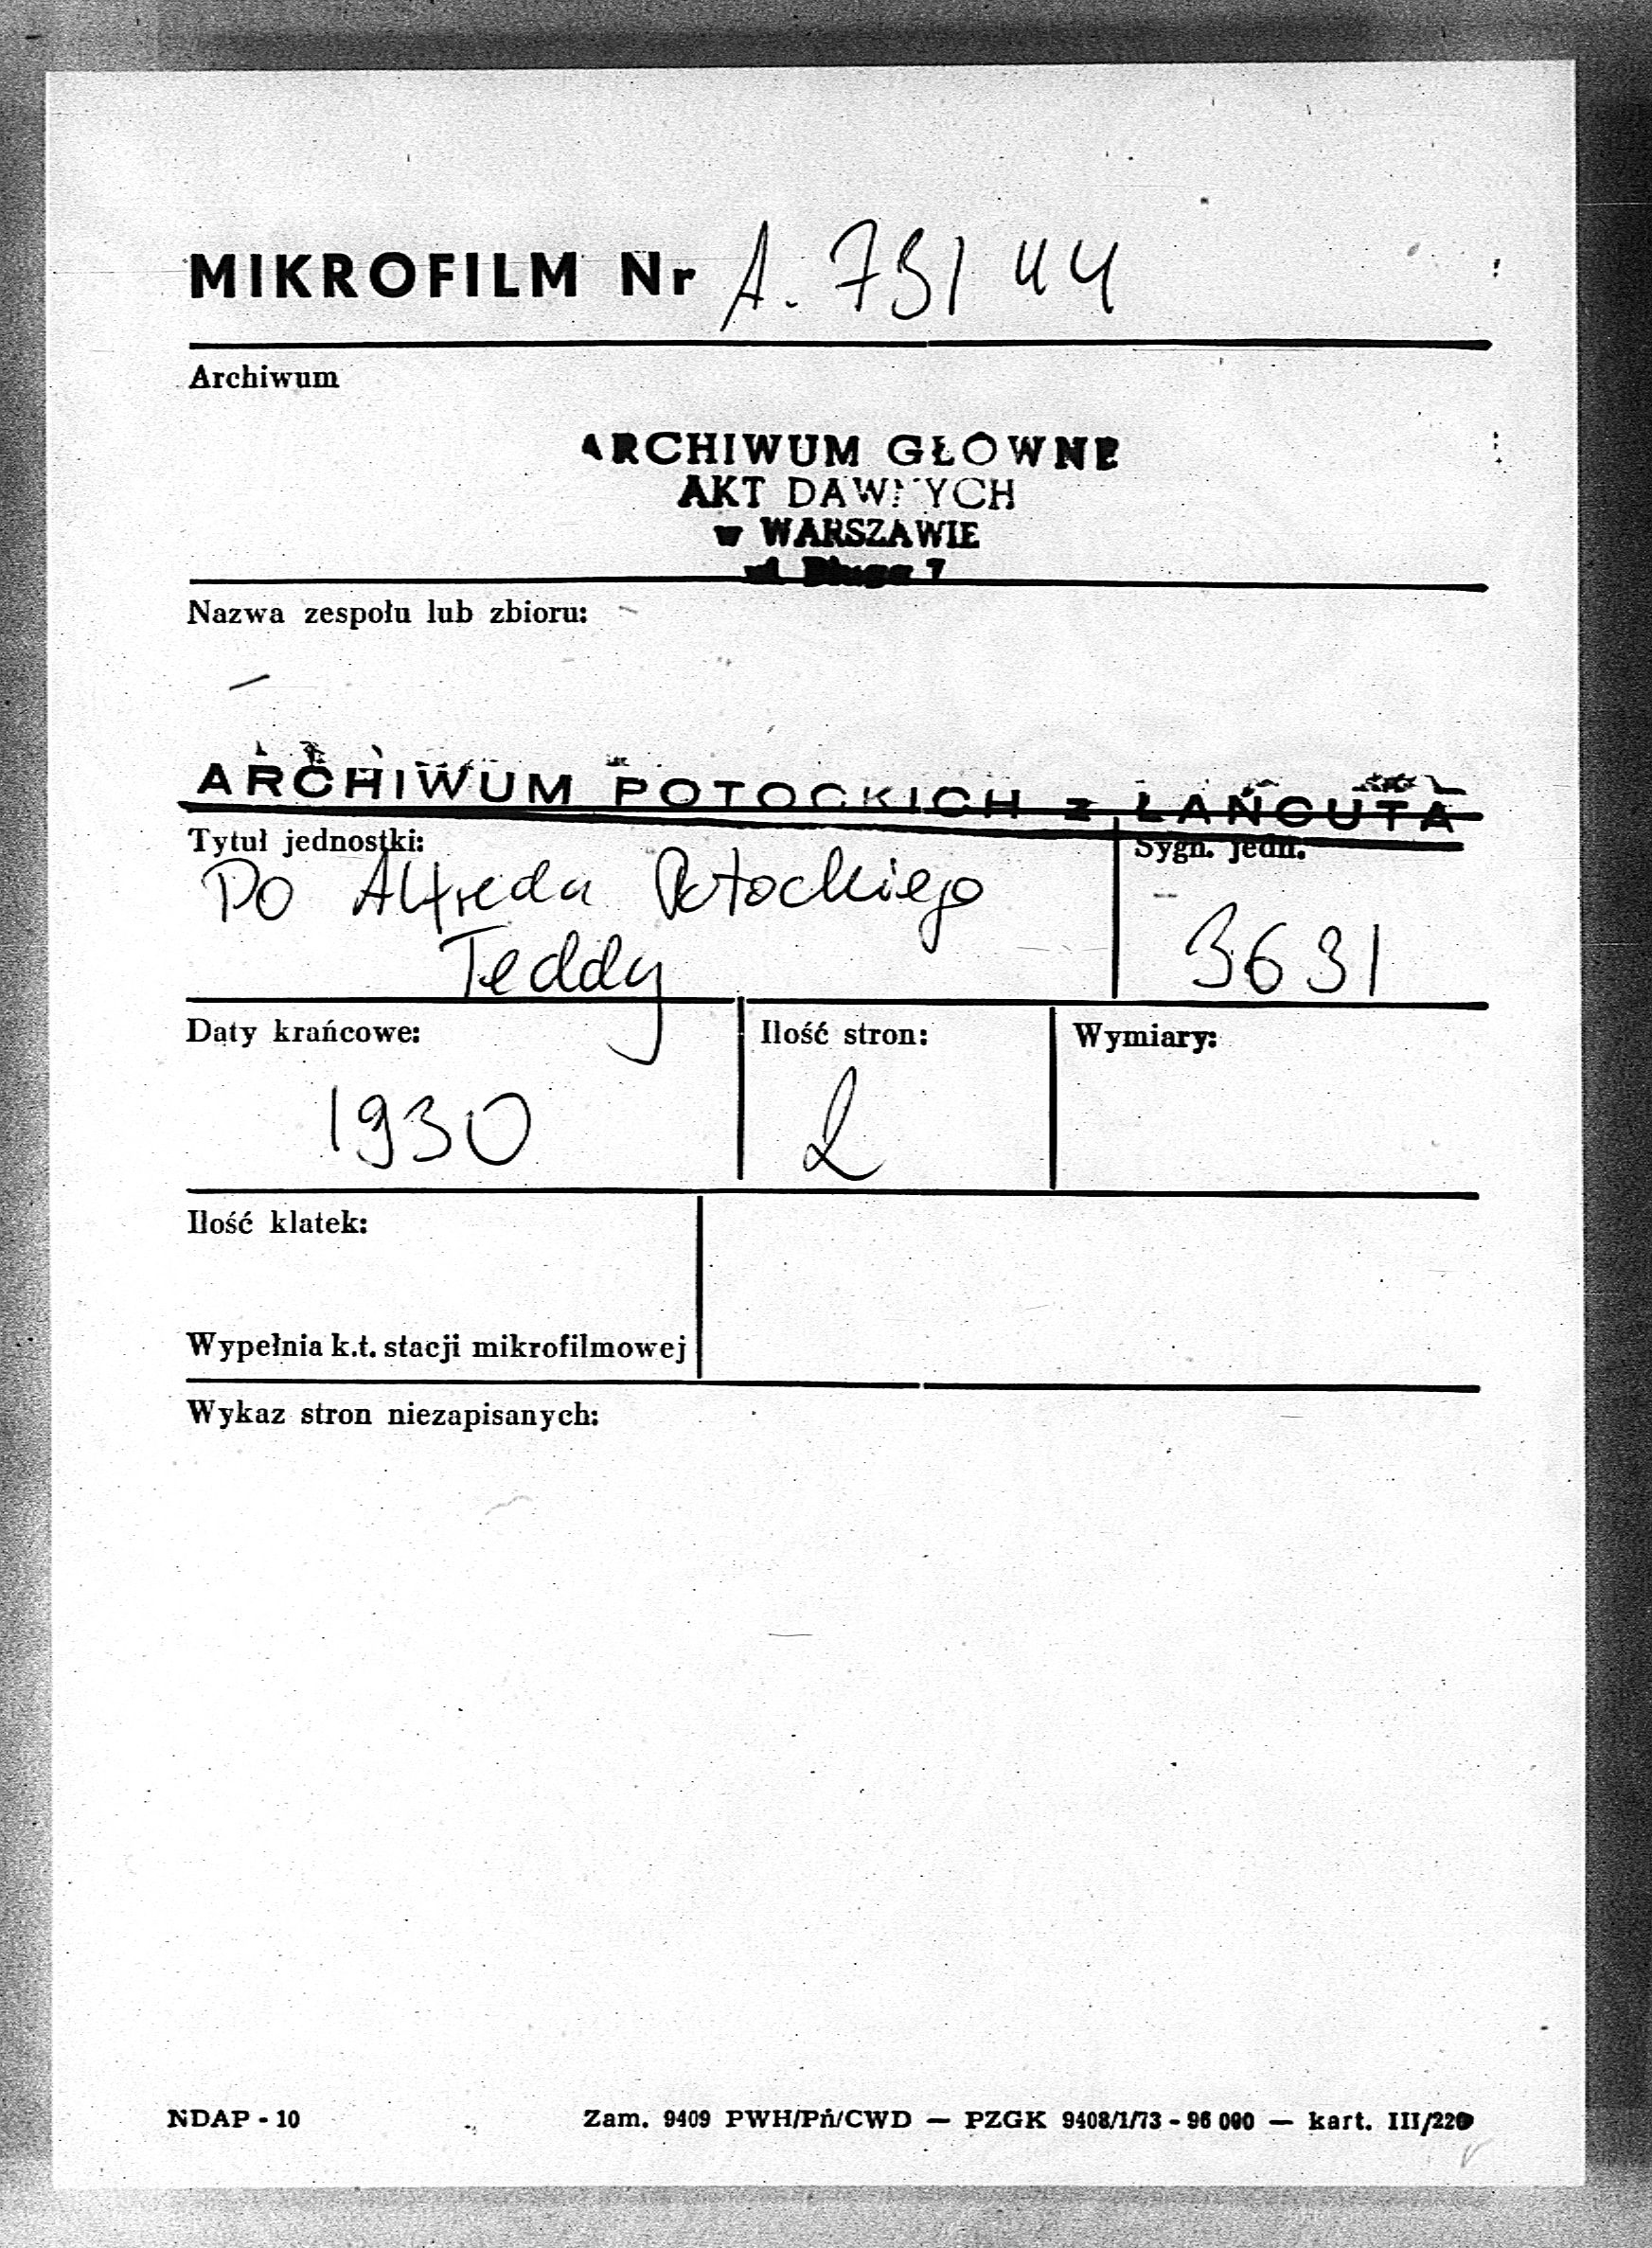 MIKROFILM Nr A. 73144
Archiwum
ARCHIWUM GŁÓWNE
AKT DAWNYCH
w WARSZAWIE
ul. Długa 7
Nazwa zespołu lub zbioru:
ARCHIWUM POTOCKICH z ŁAŃCUTA
Tytuł jednostki:
Sygn. jedn.
Do Alfreda Potockiego
Teddy
3631
Daty krańcowe:
Ilość stron:
Wymiary:
1930
2
Ilość klatek:
Wypełnia k.t. stacji mikrofilmowej
Wykaz stron niezapisanych:
NDAP - 10
Zam. 9409 PWH/Pń/CWD — PZGK 9408/1/73 - 96 000 — kart. III/220